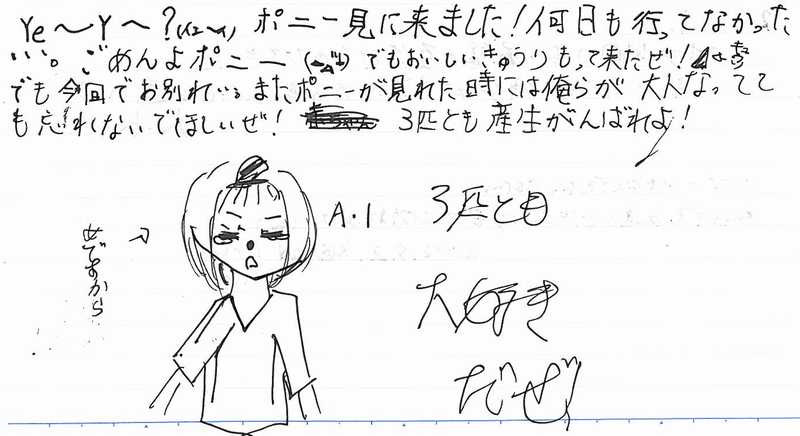 Ye～Y～?(イェ～イ) ポニー見に来ました!何日も行ってなかった
ごめんよポニー でもおいしいきゅうりもって来たぜ!
でも今回でお別れ またポニーが見れた時には俺らが大人なってて
も忘れないでほしいぜ! 3匹とも産生がんばれよ!
A.I
女ですから
3匹とも
大好き
だぜ